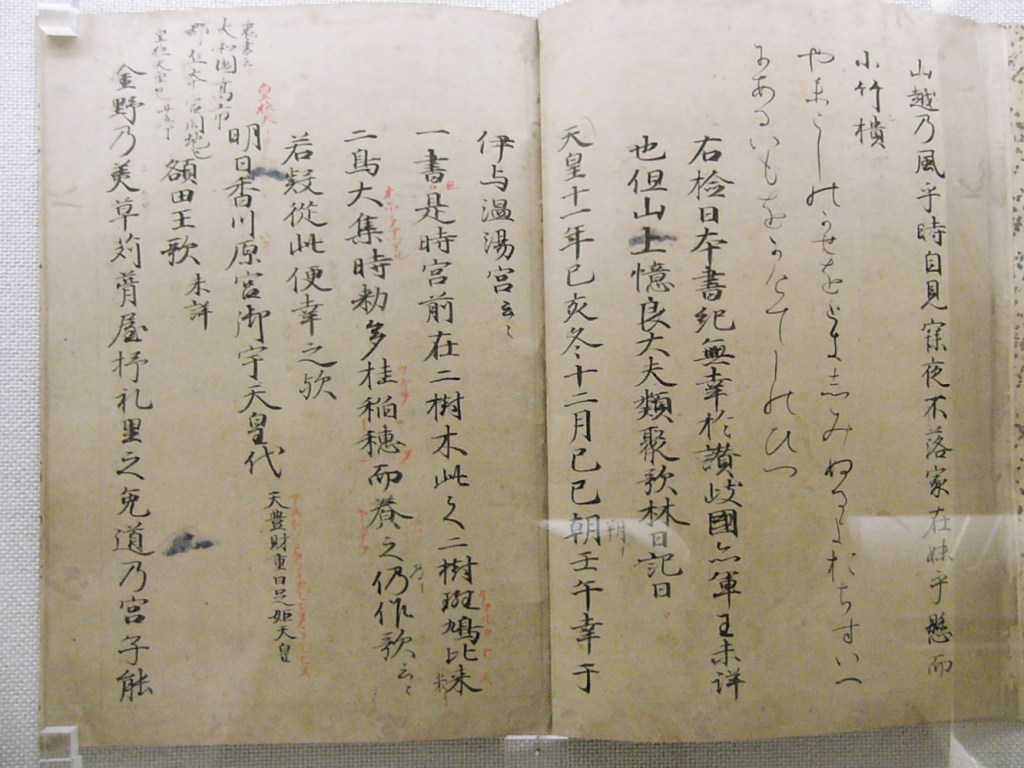 山越乃風乎時自見寐夜不落家在妹乎懸而
小竹櫃
やまこしのかせをときしみぬるよおちすいへ
にあるいもをかけてしのひつ
右検日本書紀無幸於讃岐國亦軍王未詳
也但山上憶良大夫類聚歌林曰記曰
天皇十一年己亥冬十二月己巳朝壬午幸于
朔
伊与温湯宮云〻
一書是時宮前在二樹木此之二樹斑鳩比米
二鳥大集時勅多桂稲穂而養之仍作歌云〻
若疑從此便幸之歟
明日香川原宮御宇天皇代 天豊財重日足姫天皇
額田王歌 未詳
大和國高市
金野乃美草苅葺屋杼礼里之兔道乃宮子能